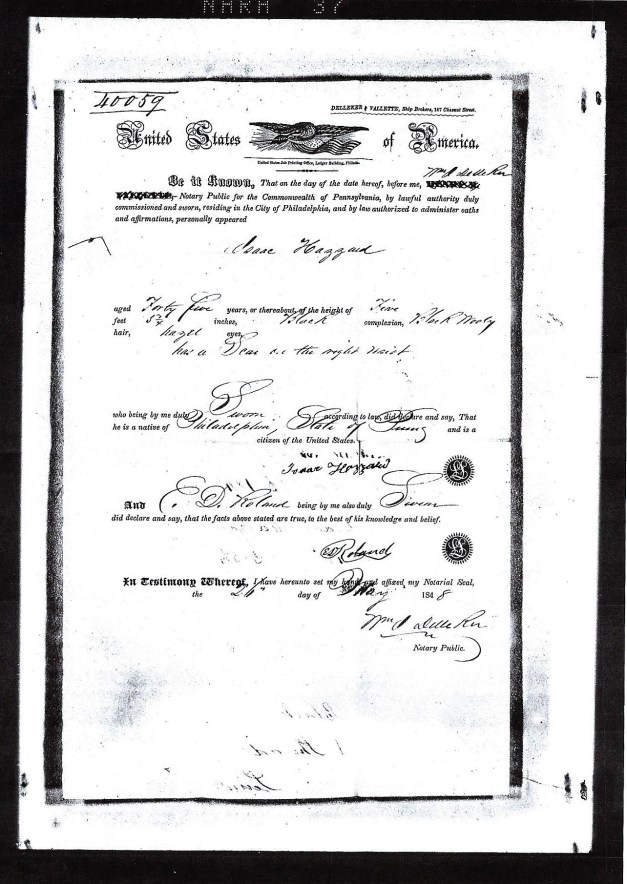 NARA 37
40059
DELLEKER & VALLETTE, Ship Brokers, 107 Chesnut Street.
United States of America.
United States Job Printing Office, Ledger Building, Philada.
Wm J Delleker
Be it Known, That on the day of the date hereof, before me,
Notary Public for the Commonwealth of Pennsylvania, by lawful authority duly
commissioned and sworn, residing in the City of Philadelphia, and by law authorized to administer oaths
and affirmations, personally appeared
Isaac Hazzard
aged Forty five years, or thereabout, of the height of Five
feet inches, Black complexion, Black Wooly
hair, hazel eyes,
has a on the right
who being by me duly Sworn according to law, did declare and say, That
he is a native of Philadelphia, State of and is a
citizen of the United States.
Isaac Hazzard
And E. D. Roland being by me also duly Sworn
did declare and say, that the facts above stated are true, to the best of his knowledge and belief.
ED Roland
In Testimony Whereof, I have hereunto set my hand and affixed my Notarial Seal,
the 26" day of May 1848
Wm J Delleker
Notary Public.